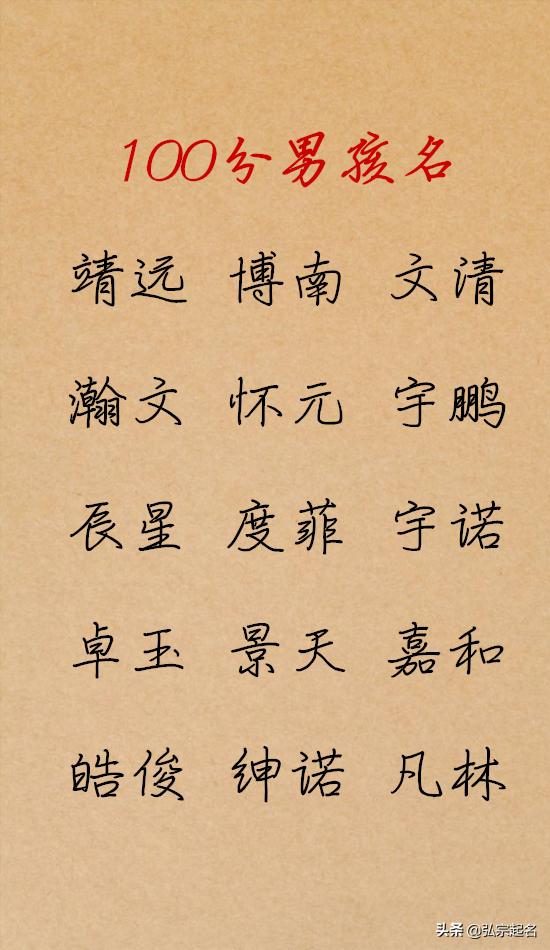 100分男孩名
靖远 博南 文清
瀚文 怀元 宇鹏
辰星 度菲 宇诺
卓玉 景天 嘉和
皓俊 绅诺 凡林
头条 @弘宗起名